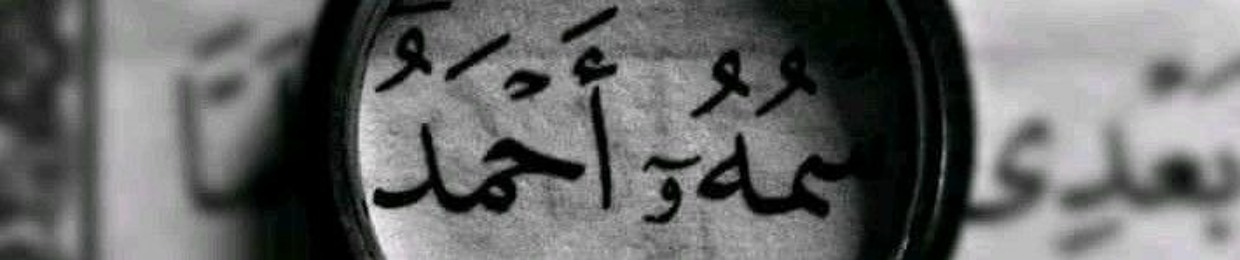 بَعْدِى سمُهُۥٓ أَحْمَدُ